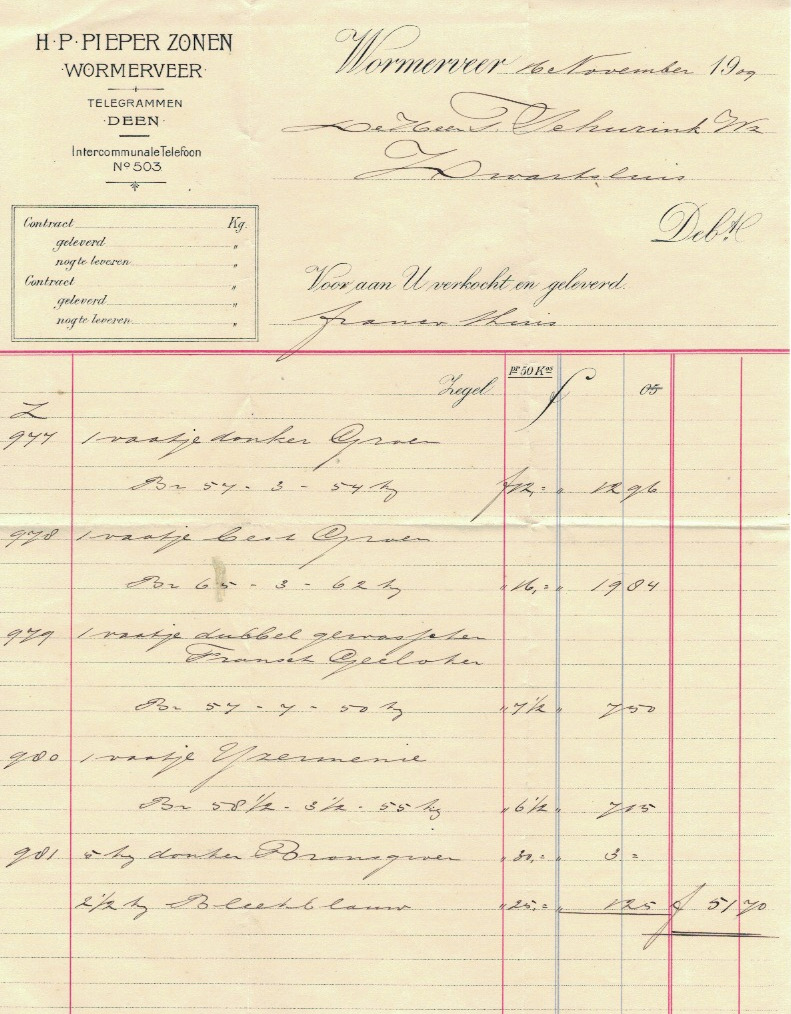 H·P·PIEPER ZONEN
·WORMERVEER·
TELEGRAMMEN
·DEEN·
Intercommunale Telefoon
No 503
Wormerveer 16 November 1909
De Heer T. Schurink Wz
Zwartsluis
Debet
Contract Kg.
geleverd "
nog te leveren "
Contract "
geleverd "
nog te leveren "
Voor aan U verkocht en geleverd.
franco thuis
pr 50 Kos
Zegel f 05
Z
977 1 vaatje donker Groen
Br 57 - 3 - 54 kg f 12,= " 12 96
978 1 vaatje best Groen
Br 65 - 3 - 62 kg " 16,= " 19 84
979 1 vaatje dubbel gewasschen
Fransch Geeloker
Br 57 - 7 - 50 kg " 7 1/2 " 7 50
980 1 vaatje Yzermenie
Br 58 1/2 - 3 1/2 - 55 kg " 6 1/2 " 7 15
981 5 kg donker Bronsgroen " 30,= " 3 =
2 1/2 kg Bleekblauw " 25,= " 1 25 f 51 70